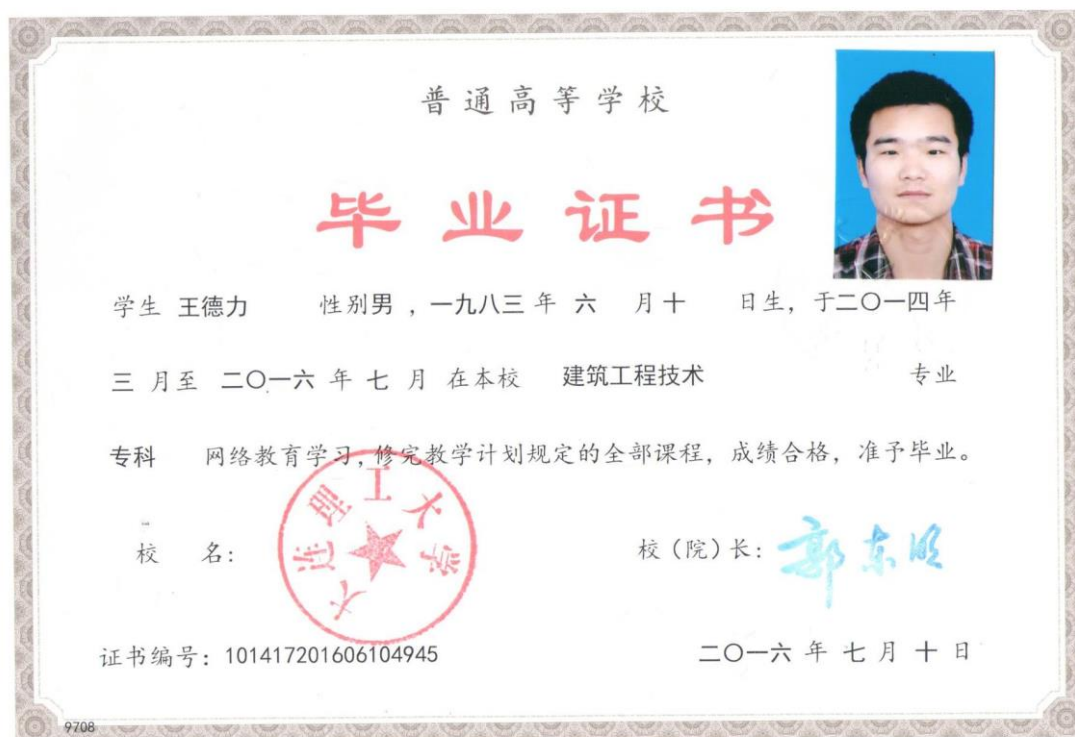 普通高等学校
毕业证书
学生 王德力 性别男，一九八三 年 六 月十 日生，于二〇一四年
三 月至 二〇一六 年 七 月 在本校 建筑工程技术 专业
专科 网络教育学习，修完教学计划规定的全部课程，成绩合格，准予毕业。
大连理工大学
校 名： 校（院）长：郭东明
证书编号：101417201606104945 二〇一六 年 七 月 十 日
9708